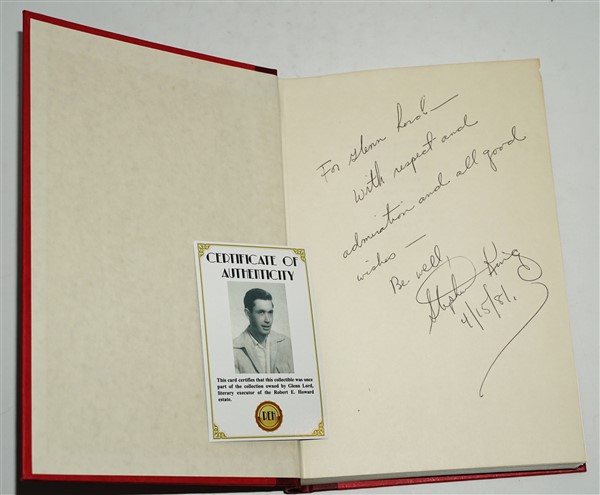 For Glenn Lord—
With respect and
admiration and all good
wishes —
Be well,
Stephen King
4/15/81.
CERTIFICATE OF
AUTHENTICITY
This card certifies that this collectible was once
part of the collection owned by Glenn Lord,
literary executor of the Robert E. Howard
estate.
REH